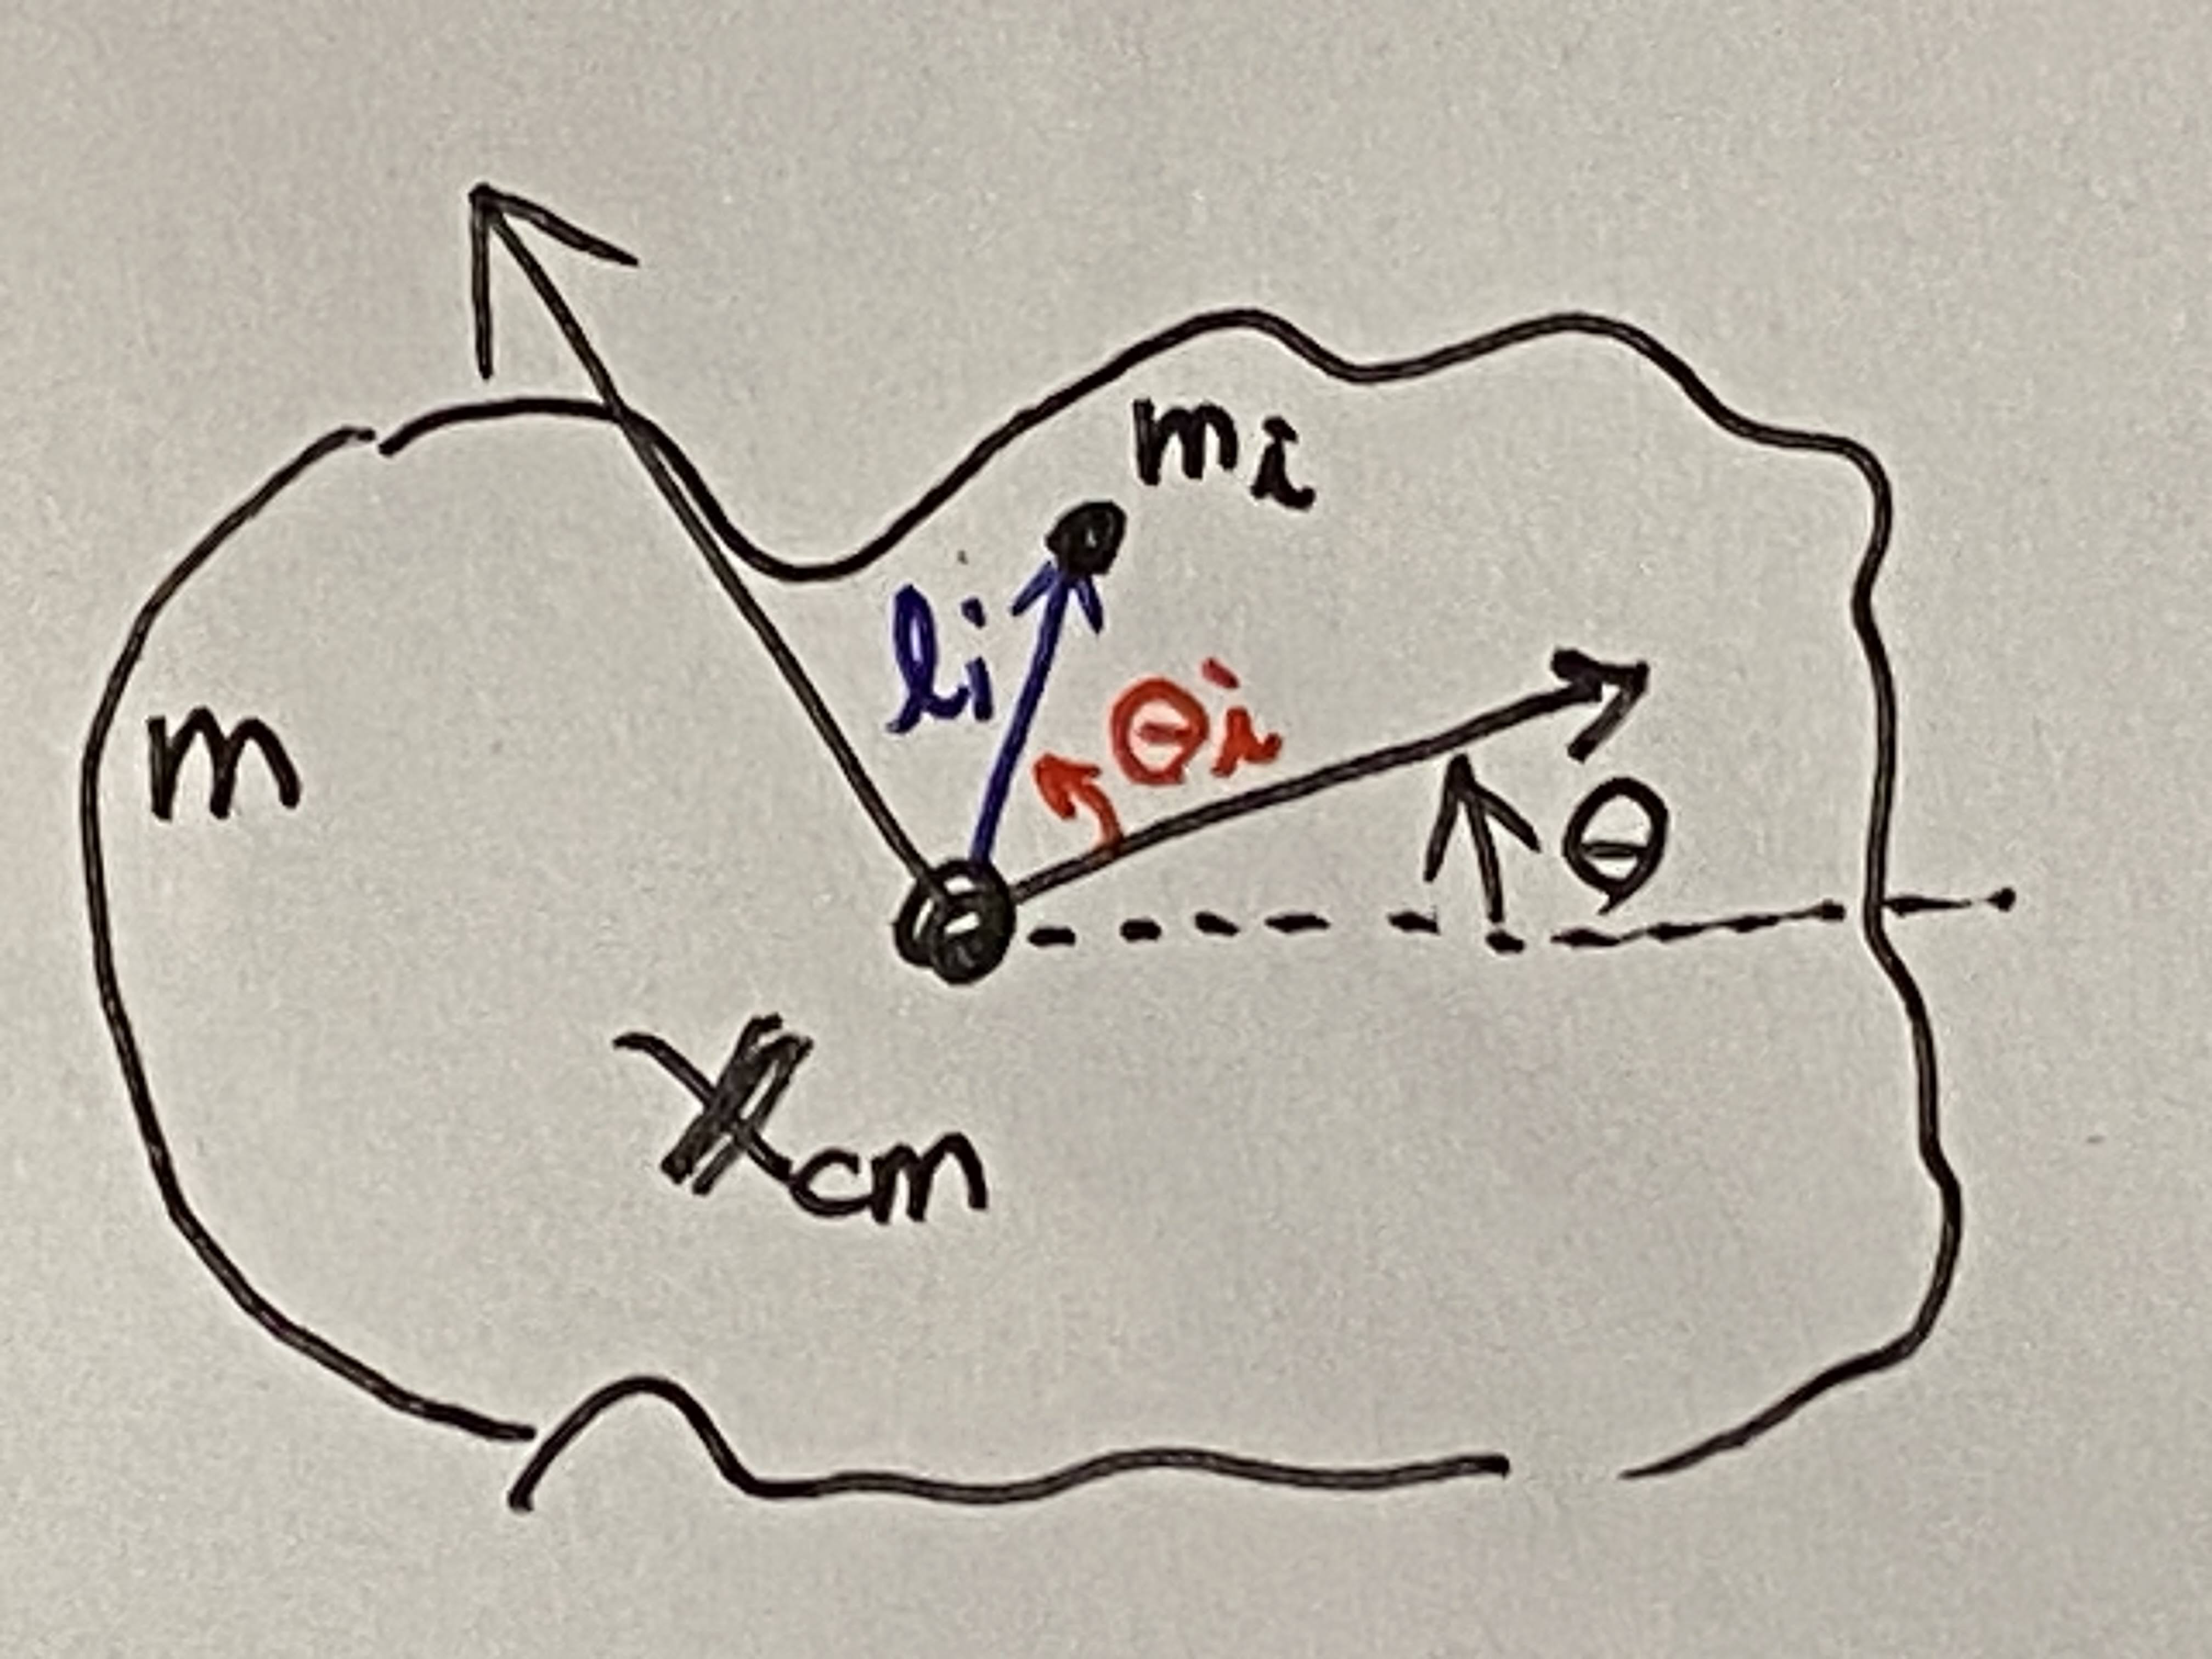 mi
li
θi
m
θ
xcm